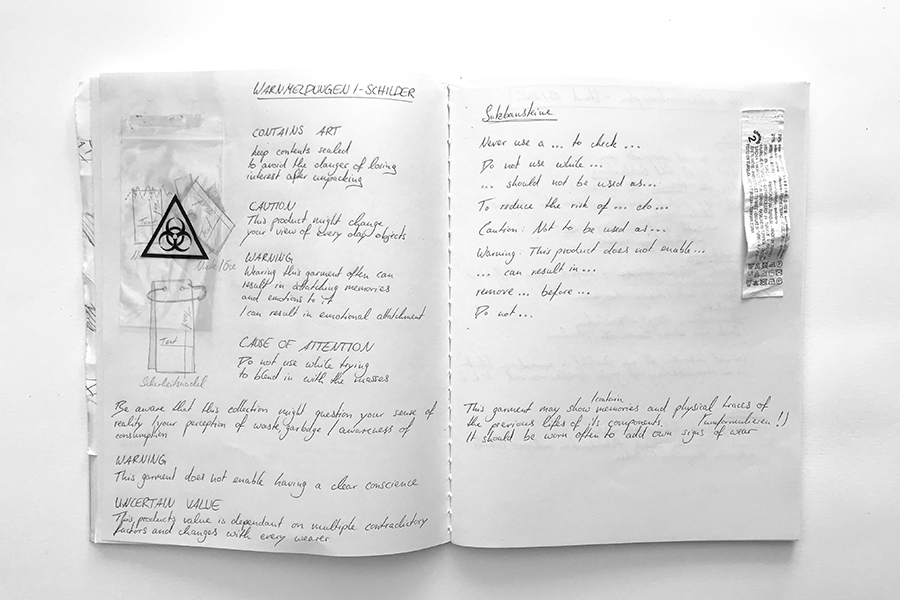 WARNMELDUNGEN / -SCHILDER
CONTAINS ART
keep contents sealed
to avoid the danger of losing
interest after unpacking
CAUTION
This product might change
your view of every day objects
WARNING
Wearing this garment often can
result in attatching memories
and emotions to it
/ can result in emotional attatchment
CAUSE OF ATTENTION
Do not use while trying
to blend in with the masses
Text
Text
Sicherheitsnadel
Be aware that this collection might question your sense of
reality / your perception of waste/garbage / awareness of
consumption
WARNING
This garment does not enable having a clear conscience
UNCERTAIN VALUE
This products value is dependant on multiple contradictory
factors and changes with every wearer
Satzbausteine
Never use a ... to check ...
Do not use while ...
... should not be used as...
To reduce the risk of ... do...
Caution: Not to be used as...
Warning: This product does not enable...
... can result in...
remove ... before ...
Do not...
/contain
This garment may show memories and physical traces of
the previous lifes of its components. (umformulieren!)
It should be worn often to add own signs of wear